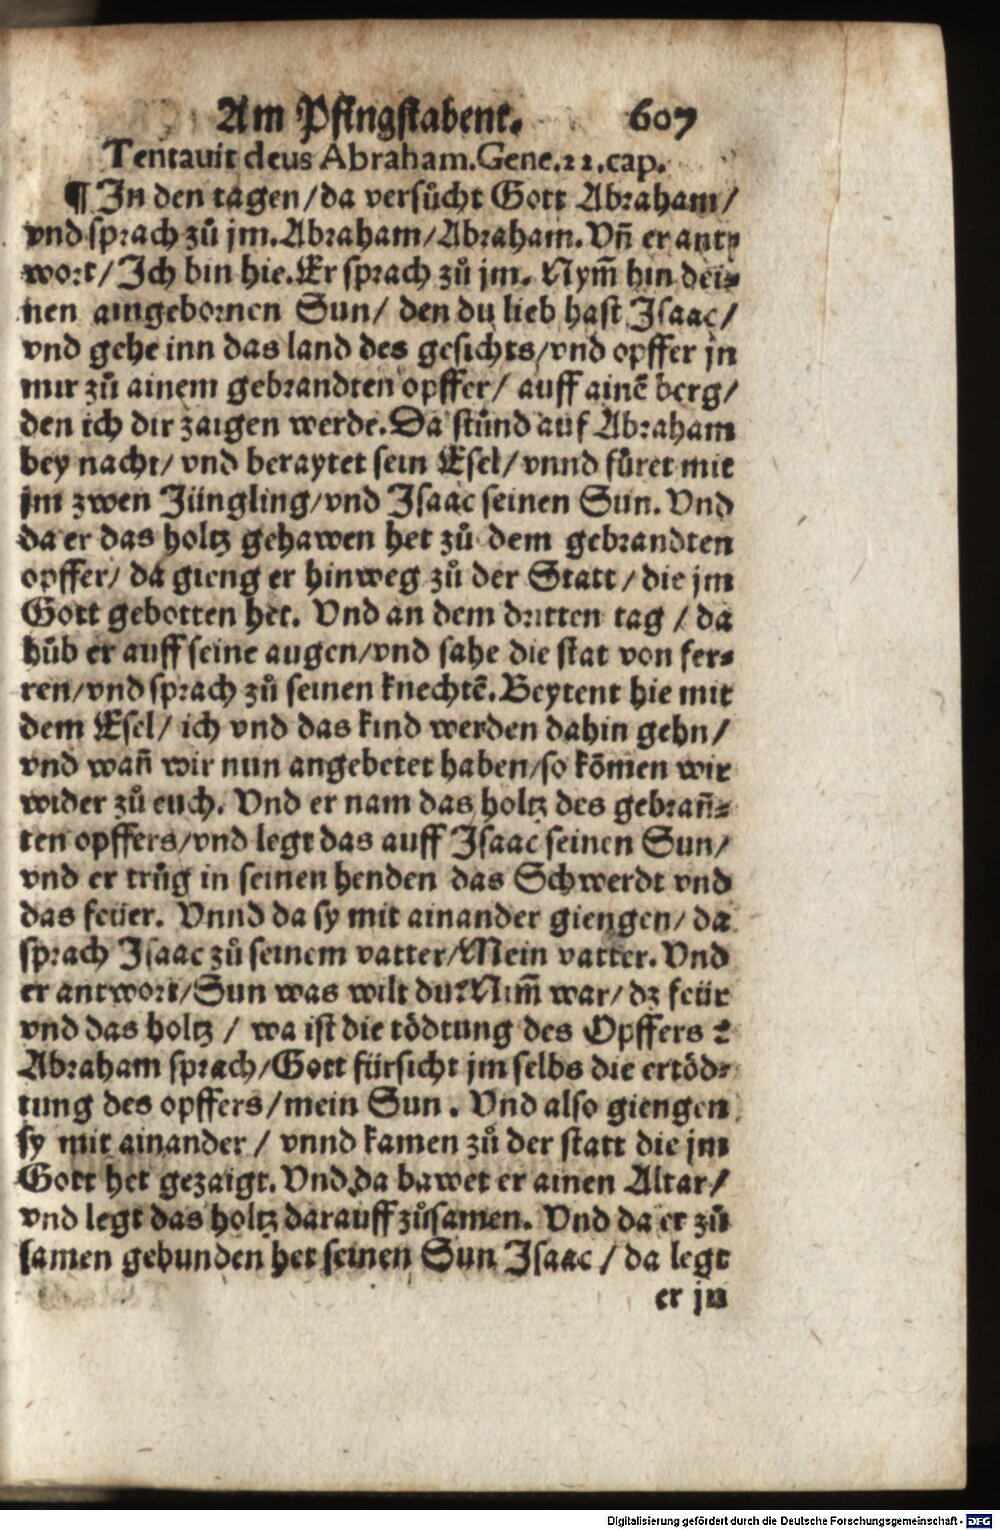 Am Pfingstabent. 607
Tentavit deus Abraham. Gene. 22. cap.
¶ In den tagen / da versůcht Gott Abraham /
vnd sprach zů jm. Abraham / Abraham. Vñ er ant⸗
wort / Ich bin hie. Er sprach zů jm. Nym̃ hin dei⸗
nen aingebornen Sun / den du lieb hast Isaac /
vnd gehe inn das land des gesichts / vnd opffer jn
mir zů ainem gebrandten opffer / auff ainẽ berg /
den ich dir zaigen werde. Da stůnd auf Abraham
bey nacht / vnd beraytet sein Esel / vnnd fůret mit
jm zwen Jüngling / vnd Isaac seinen Sun. Vnd
da er das holtz gehawen het zů dem gebrandten
opffer / da gieng er hinweg zů der Statt / die jm
Gott gebotten het. Vnd an dem dritten tag / da
hůb er auff seine augen / vnd sahe die stat von fer⸗
ren / vnd sprach zů seinen knechtẽ. Beytent hie mit
dem Esel / ich vnd das kind werden dahin gehn /
vnd wañ wir nun angebetet haben / so kõmen wir
wider zů euch. Vnd er nam das holtz des gebrañ⸗
ten opffers / vnd legt das auff Isaac seinen Sun /
vnd er trůg in seinen henden das Schwerdt vnd
das feüer. Vnnd da sy mit ainander giengen / da
sprach Isaac zů seinem vatter / Mein vatter. Vnd
er antwort / Sun was wilt du? Nim̃ war / dz feür
vnd das holtz / wa ist die tödtung des Opffers?
Abraham sprach / Gott fürsicht jm selbs die ertöd⸗
tung des opffers / mein Sun. Vnd also giengen
sy mit ainander / vnnd kamen zů der statt die jm
Gott het gezaigt. Vnd da bawet er ainen Altar /
vnd legt das holtz darauff zůsamen. Vnd da er zů
samen gebunden het seinen Sun Isaac / da legt
er jn
Digitalisierung gefördert durch die Deutsche Forschungsgemeinschaft - DFG